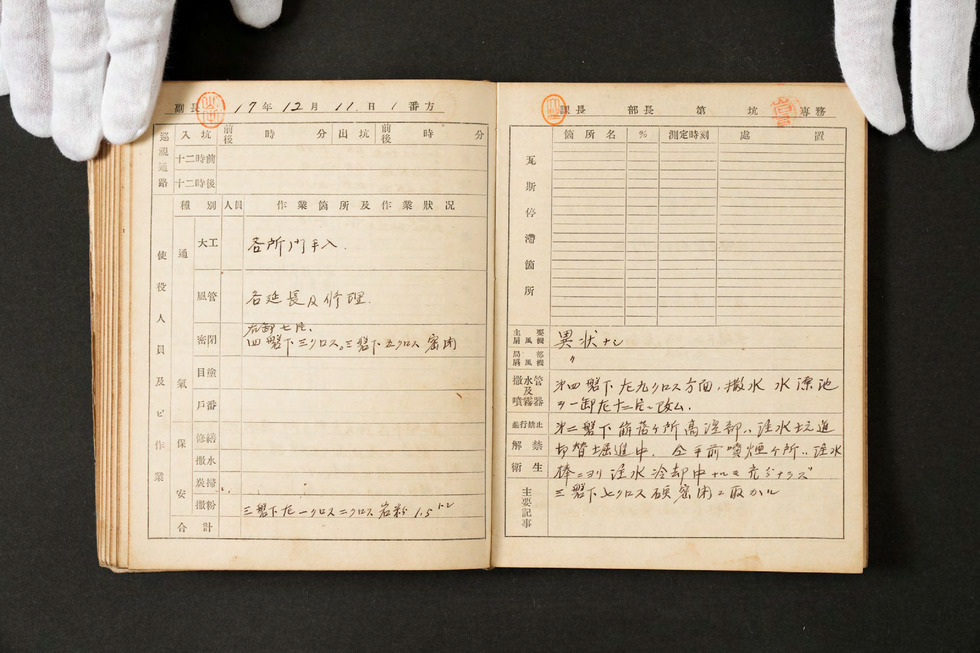 副長 17年12月11日1番方
巡視通路 入坑 前後 時 分 出坑 前後 時 分
十二時前
十二時後
使役人員及ビ作業
種別 人員 作業箇所及作業狀況
通氣
大工 各所門手入.
風管 各延長及修理.
密閉 右卸七片、
四盤下三クロス。三盤下五クロス 密閉
目塗
戶番
保安
修繕
撒水
炭掃
撒粉 三盤下左一クロス二クロス岩粉 1.5トン
合計
課長 部長 第 坑 專務
瓦斯停滯箇所
箇所名 % 測定時刻 處置
主要扇風機 異狀ナシ
局部扇風機 〃
撒水管及噴霧器 第四盤下左九クロス方面、撒水 水源池
ヲ一卸左十二片ニ改ム.
進行禁止 第二盤下崩落ヶ所高溫部ハ注水坑道
解禁 切替掘進中. 全手前噴煙ヶ所ハ注水
衛生 棒ニヨリ注水冷却中ナルモ充分ナラズ
主要記事 三盤下七クロス 密閉ニ取カル